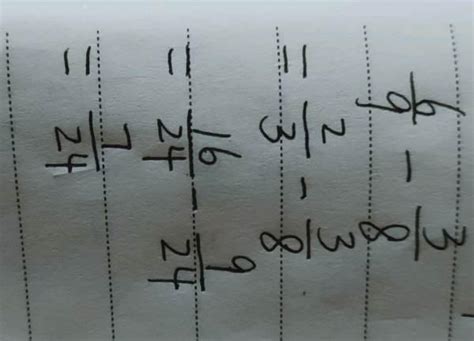 6/9 - 3/8
= 2/3 - 3/8
= 16/24 - 9/24
= 7/24